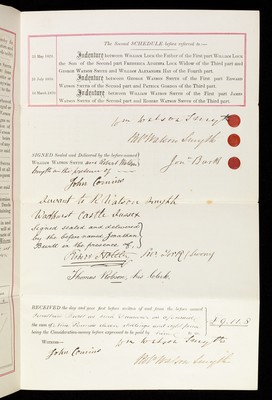 The Second SCHEDULE before referred to:—
Indenture between William Lock the Father of the First part William Lock
the Son of the Second part Frederica Augusta Lock Widow of the Third part and
George Watson Smyth and William Alexander Hay of the Fourth part.
Indenture between George Watson Smyth of the First part Edward
Watson Smyth of the Second part and Patrick Gordon of the Third part
Indenture between William Watson Smyth of the First part James
Watson Smyth of the Second part and Robert Watson Smyth of the Third part.
Wm Watson Smyth
Rt Watson Smyth
Jonn Burtt
SIGNED Sealed and Delivered by the before-named
William Watson Smyth and Robert Watson
Smyth in the presence of
John Comins
Servant to R. Watson Smyth
Wadhurst Castle Sussex
Signed sealed and delivered
by the before named Jonathan
Burtt in the presence of
Thomas Robson, his Clerk.
RECEIVED the day and year first before written of and from the before named
the sum of Nine Pounds eleven shillings and eight pence
being the Consideration-money before expressed to be paid by
£9.11.8
Witness—
John Comins
Wm Watson Smyth
Rt Watson Smyth